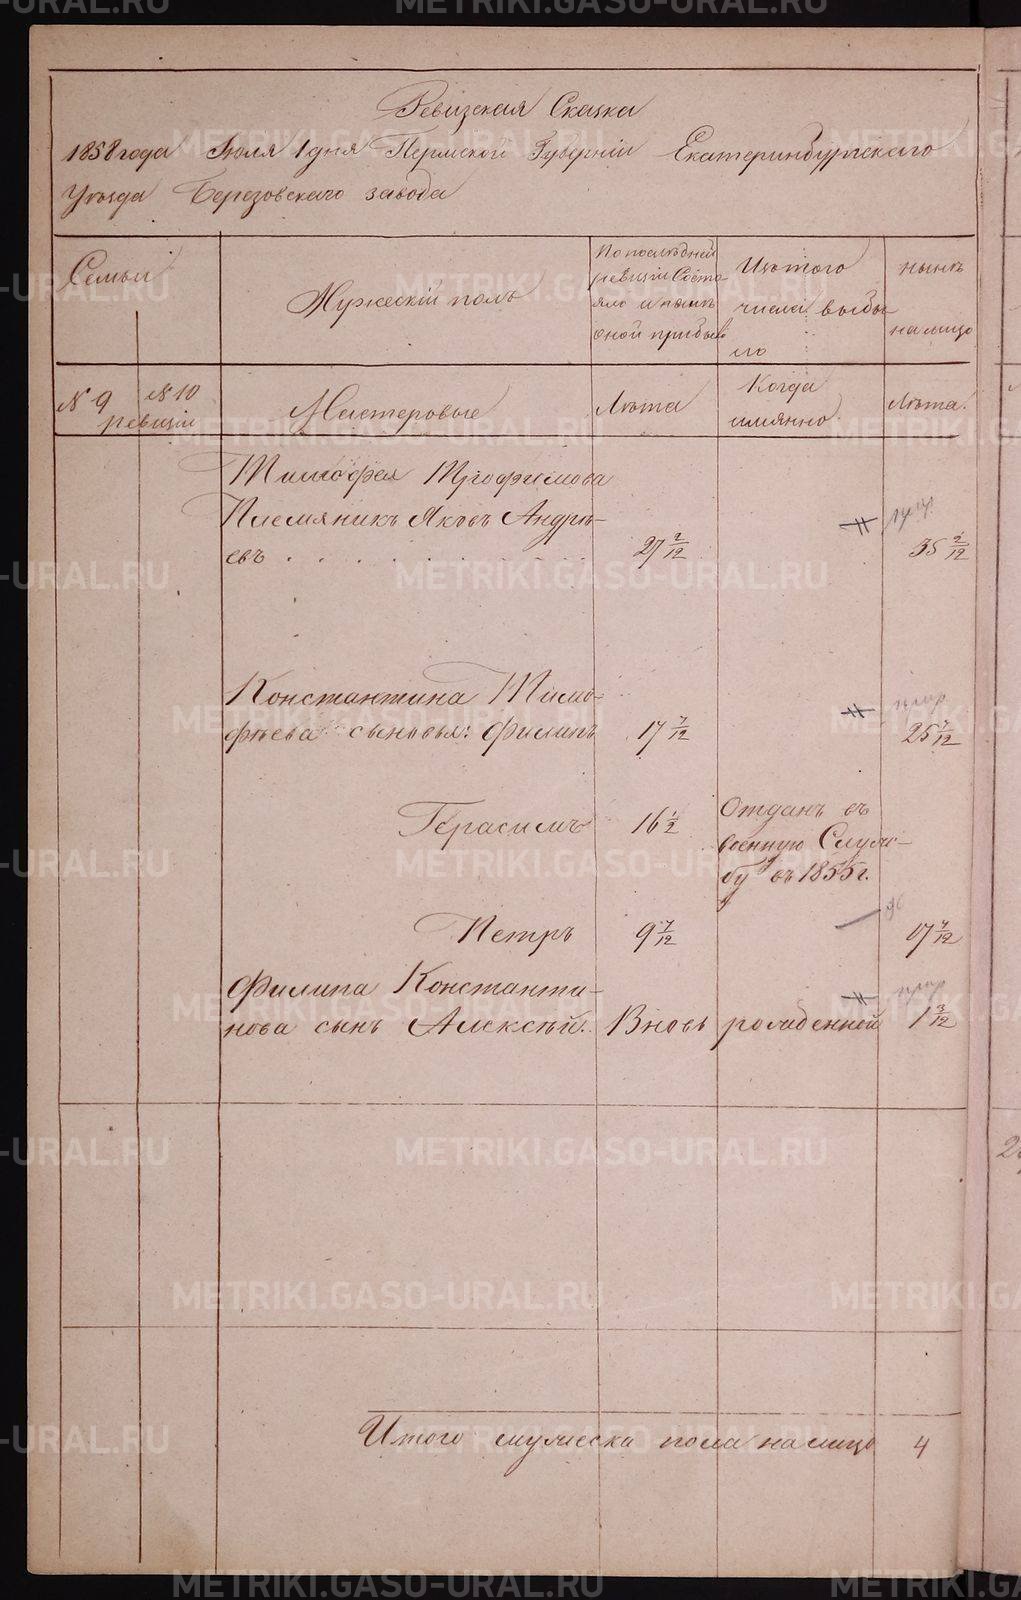 Ревизская Сказка
1858 года Июля 1 дня Пермской Губерніи Екатеринбургскаго
Уѣзда Березовскаго завода
Семьи
Мужескій полъ
По послѣдней
ревизіи Состо
яло и послѣ
оной прибыло
Изътого
числа выбы
ло
нынѣ
налицо
№ 9 № 10
ревизіи
Мастеровые
Лѣта
Когда
имянно.
Лѣта.
Тимофея Трофимова
Племяникъ Яковъ Андрѣ-
евъ . . . . . . . . . . 27 2/12 35 2/12
Константина Тимо-
фѣева сыновья: Филипъ 17 7/12 25 7/12
Герасимъ 16 1/2 Отданъ въ
военную Служ-
бу въ 1855 г.
Петръ 9 7/12 17 7/12
Филипа Константи-
нова сынъ Алексѣй. Вновь рожденней 1 3/12
Итого мужеска пола налицо 4
METRIKI.GASO-URAL.RU